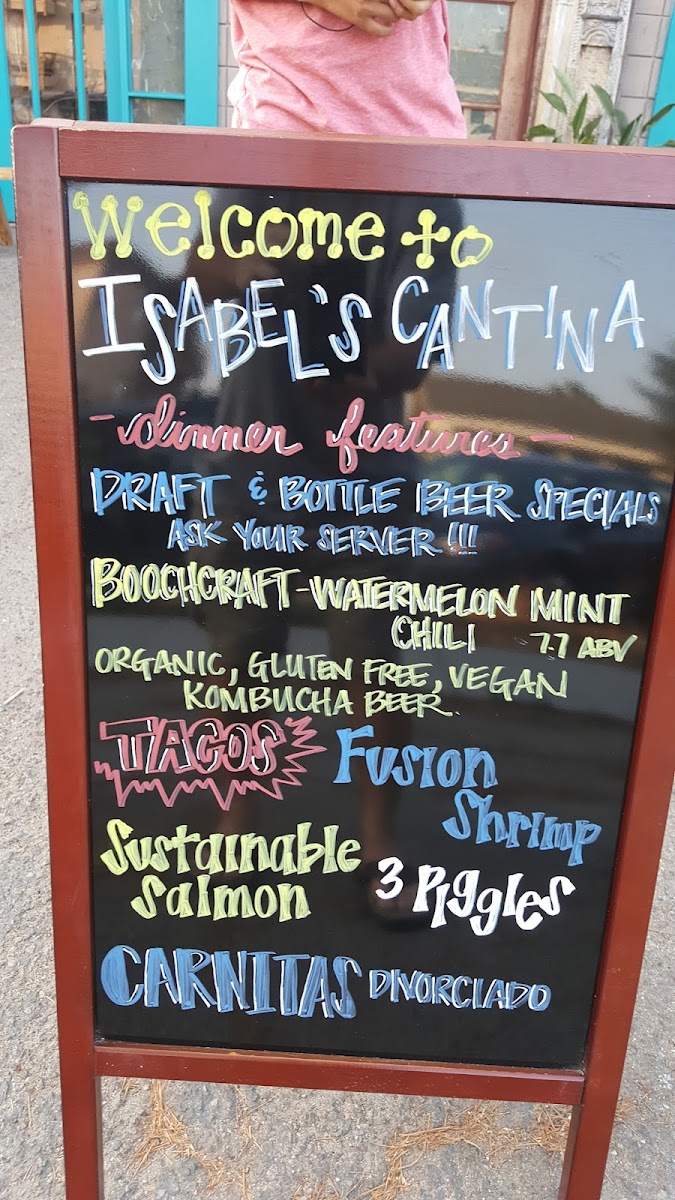 Welcome to
ISABEL'S CANTINA
- dinner features -
DRAFT & BOTTLE BEER SPECIALS
ASK YOUR SERVER!!!
BOOCHCRAFT-WATERMELON MINT
CHILI 7.7 ABV
ORGANIC, GLUTEN FREE, VEGAN
KOMBUCHA BEER.
TACOS Fusion
Shrimp
Sustainable
Salmon 3 Piggles
CARNITAS DIVORCIADO